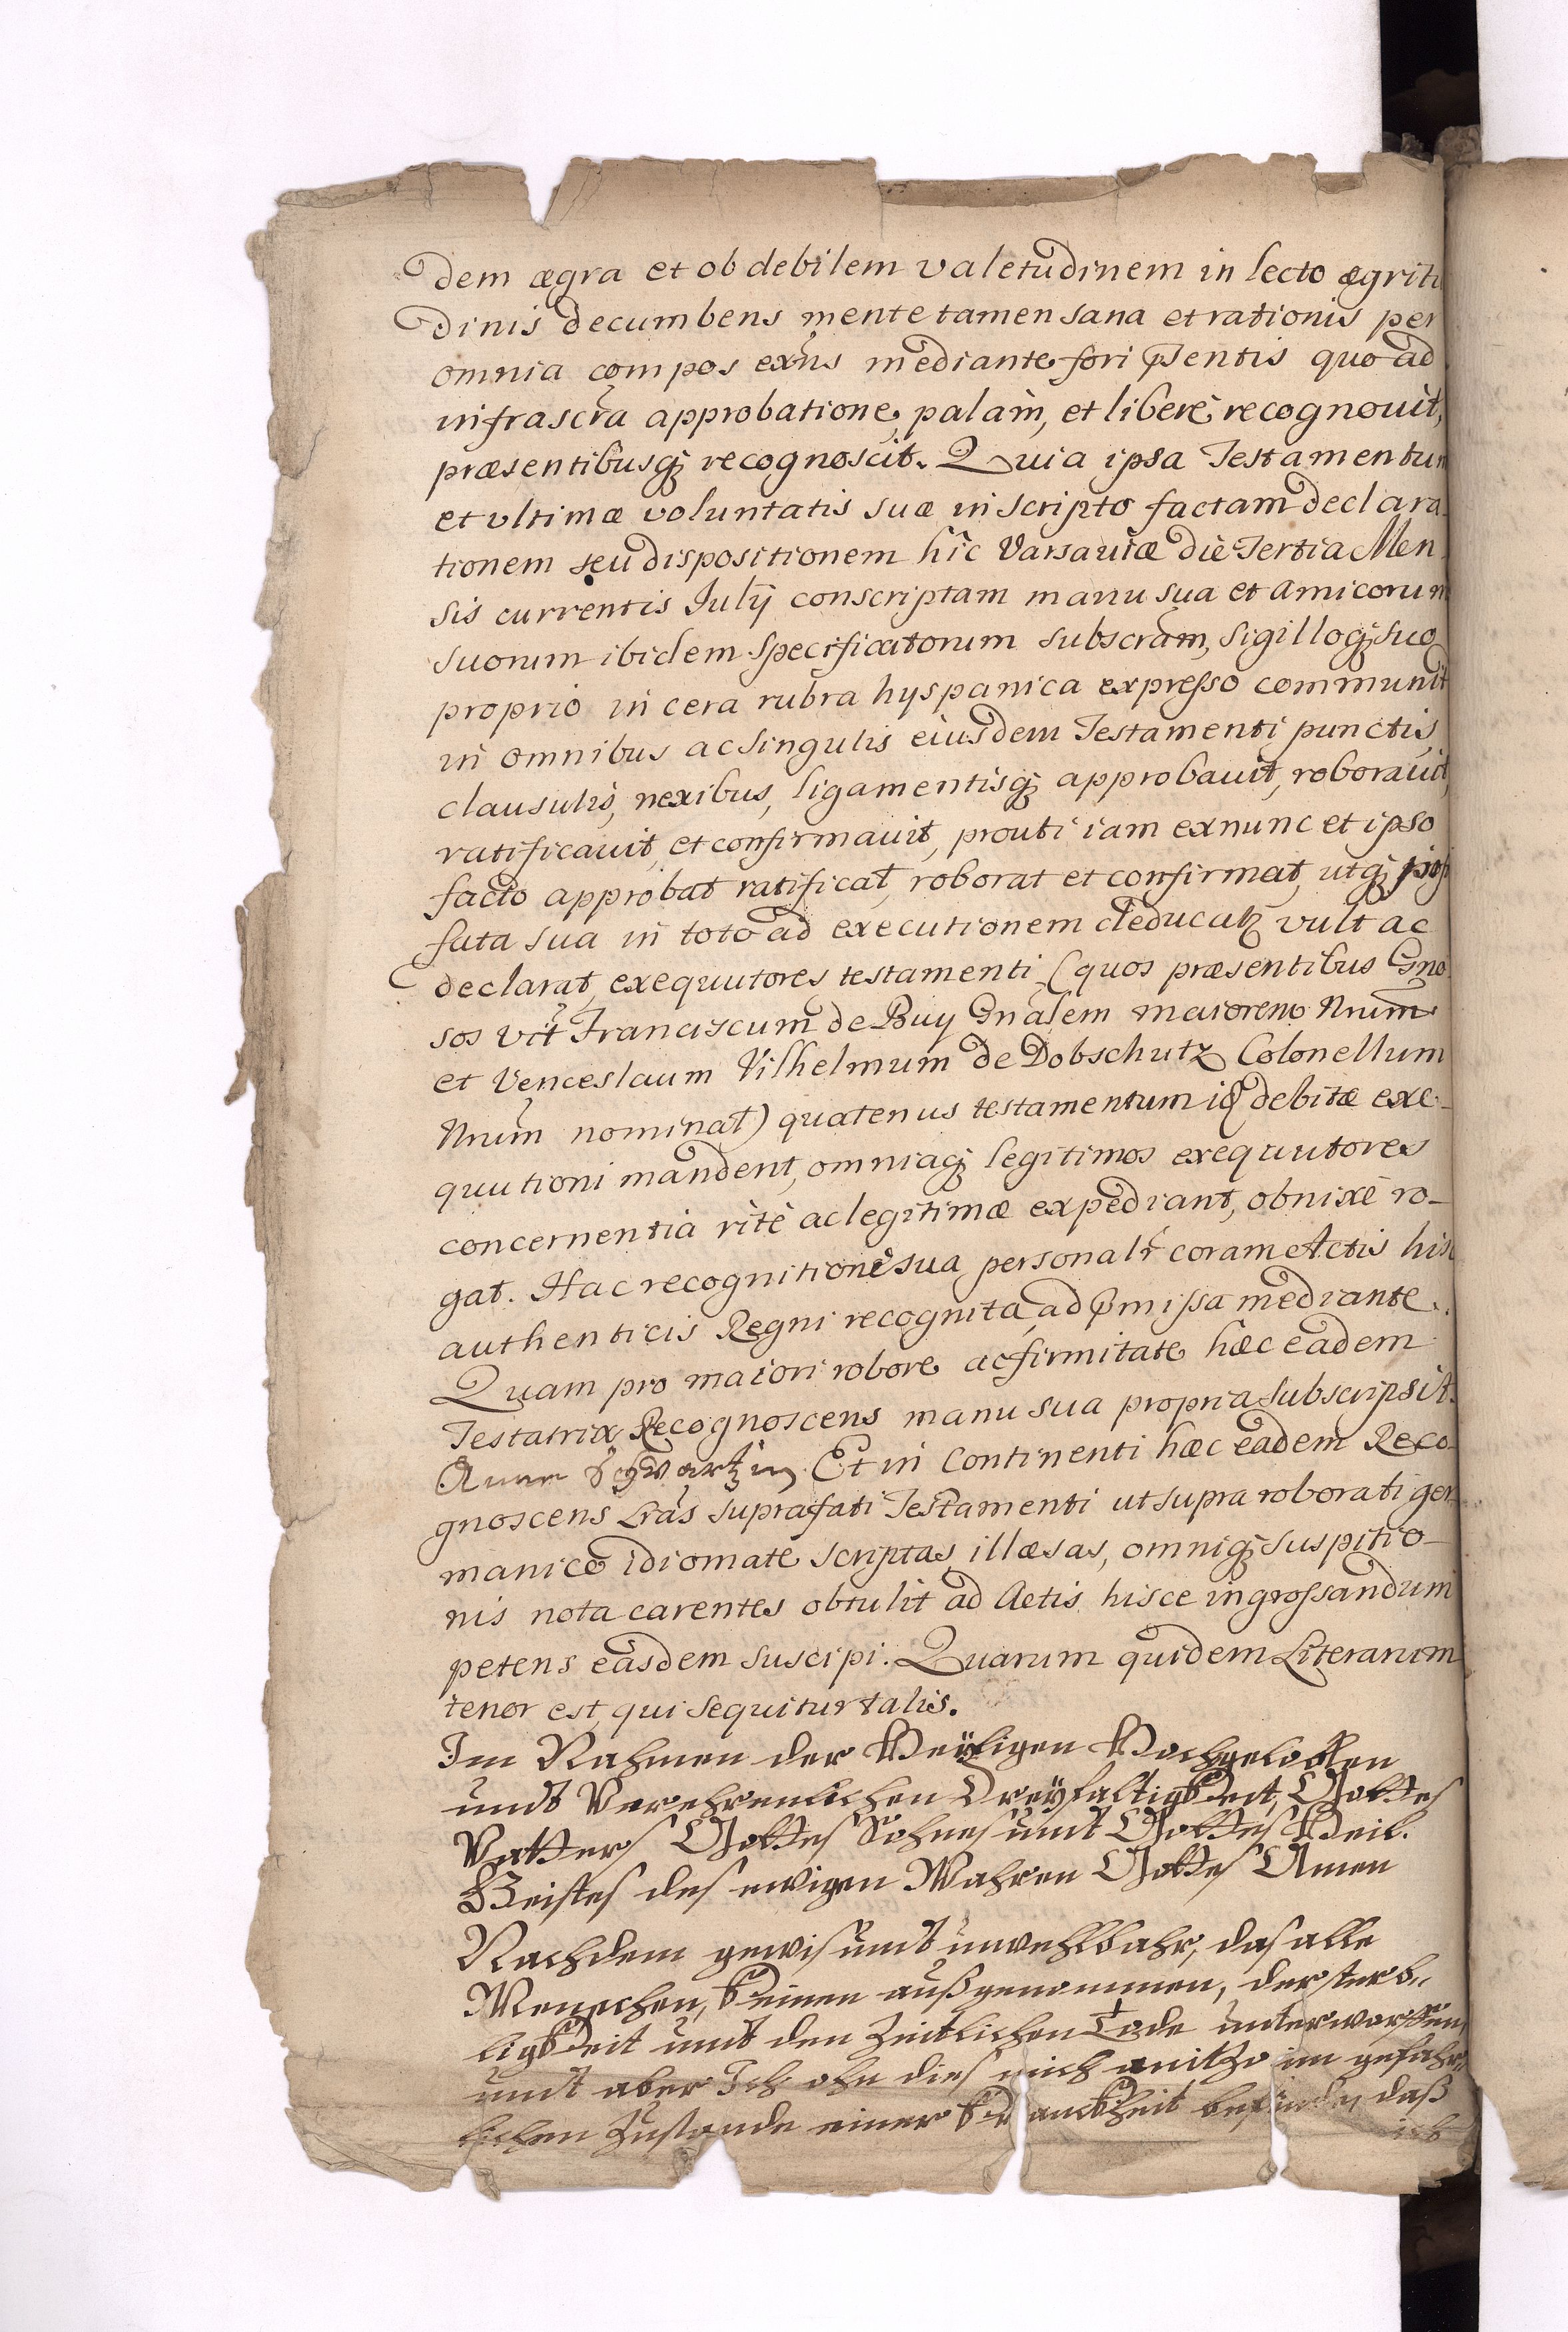 dem ægra et ob debilem valetudinem in lecto ægritu
dinis decumbens mente tamen sana et rationis per
omnia compos exñs mediante fori p̃sentis quo ad
infrascrã approbatione, palam, et libere recognovit,
præsentibusq; recognoscit. Quia ipsa Testamentum
et vltimæ voluntatis suæ in scripto factam declara-
tionem seu dispositionem hic Varsaviæ die Tertia Men-
sis currentis Julij conscriptam manu sua et amicorum
suorum ibidem specificatorum subscrãm, sigilloq; suo
proprio in cera rubra hyspanica expresso communit
in omnibus ac singulis eiusdem Testamenti punctis
clausulis, nexibus, ligamentisq; approbavit, roboravit,
ratificavit, et confirmavit, prouti iam ex nunc et ipso
facto approbat ratificat, roborat et confirmat, utq; post
fata sua in toto ad executionem deducatz vult ac
declarat, exequutores testamenti (quos præsentibus Gno-
sos vtt Franciscum de Buy Gnãlem maiorem Nrum
et Venceslaum Vilhelmum de Dobschutz Colonellum
Nrum nominat) quatenus testamentum id debitæ exe-
quutioni mandent, omniaq; legitimos exequutores
concernentia rite ac legitimæ expediant, obnixe ro-
gat. Hac recognitione sua personalr coram Actis his
authenticis Regni recognita, ad p̃missa mediante.
Quam pro maiori robore ac firmitate hæc eadem
Testatrix Recognoscens manu sua propria subscripsit.
Anna Schwartzin Et in Continenti hæc eadem Reco-
gnoscens Lrãs suprafati Testamenti ut supra roborati ger
manico idiomate scriptas, illæsas, omniq; suspitio-
nis nota carentes obtulit ad Actis hisce ingrossandum
petens easdem suscipi. Quarum quidem Literarum
tenor est, qui sequitur talis.
Im Nahmen der Heyligen Hochgelobten
undt Verehrenlichen Dreyfaltigkeit, Gottes
Vatters Gottes Sohnes undt Gottes Heil.
Geistes des ewigen Wahren Gottes Amen
Nachdem gewis undt unvehlbahr, das alle
Menschen, keinen außgenommen, der sterb-
ligkeit undt den Zeitlichen Tode unterworffen,
undt aber Ich ohn dies mich anitzo im gefähr
lichen Zustande einer Kranckheit befinde, daß
ich